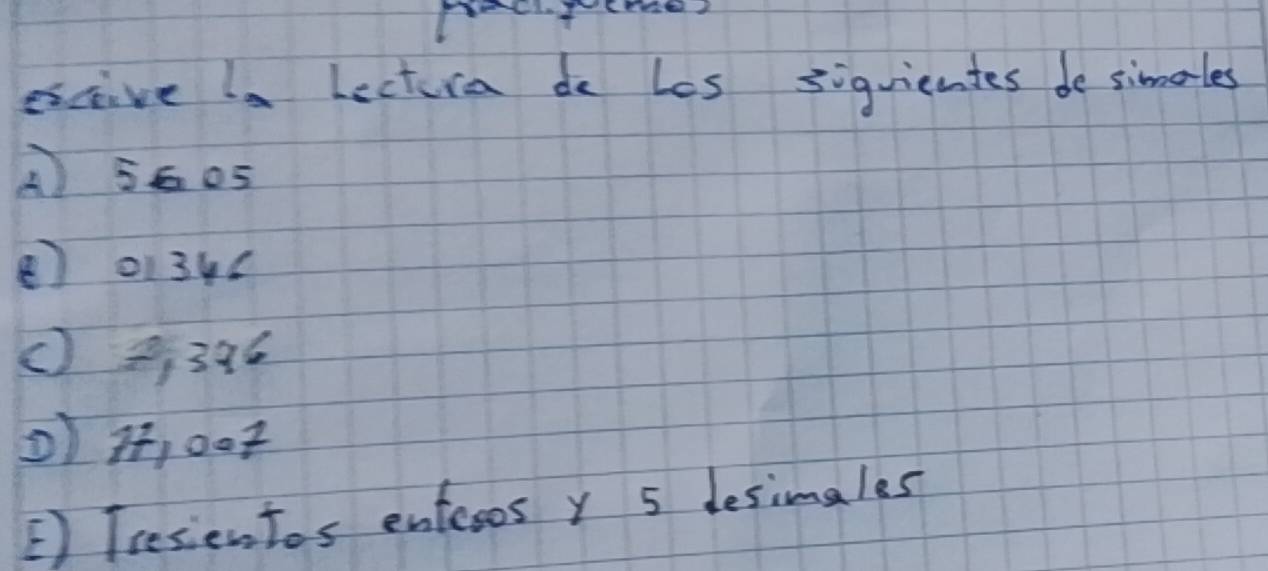 escrive la Lectura de Los siguientes de simales
A) 5605
B) 0,346
C) 7,396
D) 77,007
E) Tresientos enteros y 5 desimales